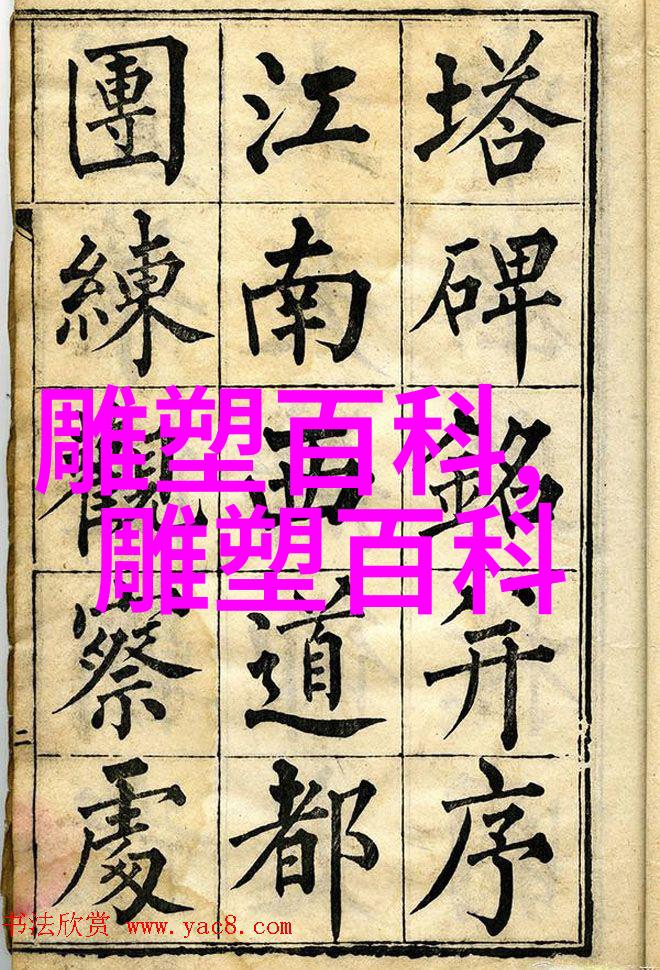 塔碑銘并序
江南西道都
團練觀察處
雕塑百科,
雕塑百科
二
书法欣赏 www.yac8.com